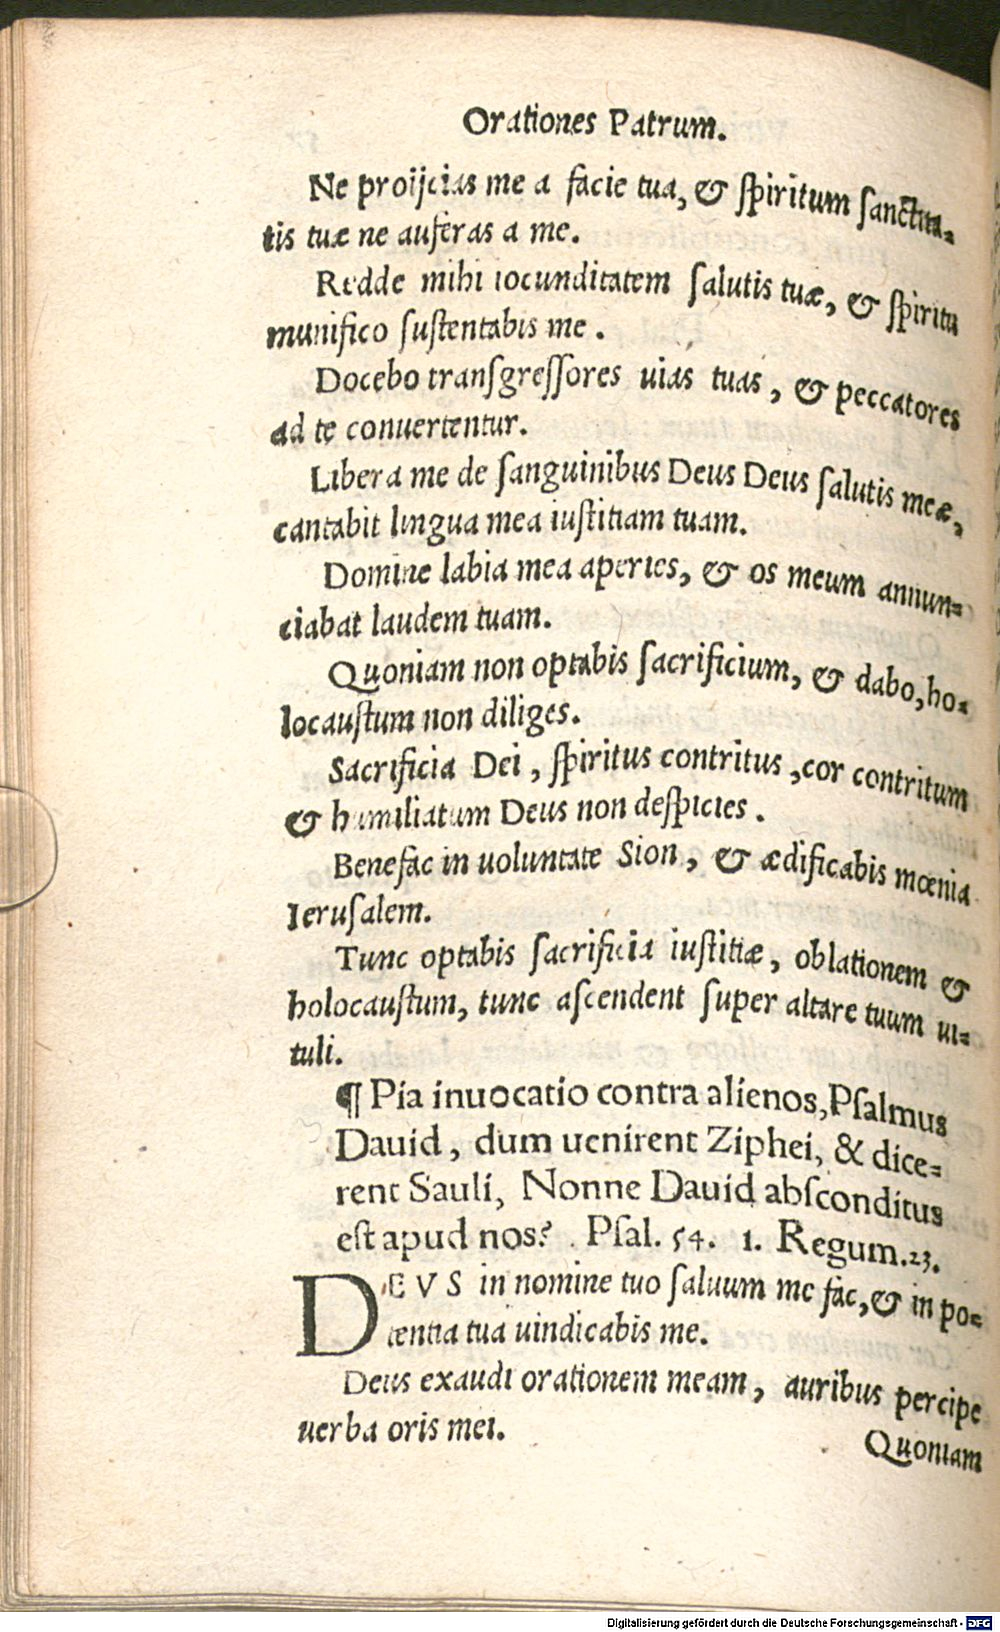 Orationes Patrum.
Ne proijcias me a facie tua, & ſpiritum ſanctita-
tis tuæ ne auferas a me.
Redde mihi iocunditatem ſalutis tuæ, & ſpiritu
munifico ſuſtentabis me.
Docebo tranſgreſſores uias tuas, & peccatores
ad te conuertentur.
Libera me de ſanguinibus Deus Deus ſalutis meæ,
cantabit lingua mea iuſtitiam tuam.
Domine labia mea aperies, & os meum annun-
ciabat laudem tuam.
Quoniam non optabis ſacrificium, & dabo, ho-
locauſtum non diliges.
Sacrificia Dei, ſpiritus contritus, cor contritum
& humiliatum Deus non deſpicies.
Benefac in uoluntate Sion, & ædificabis mœnia
Ieruſalem.
Tunc optabis ſacrificia iuſtitiæ, oblationem &
holocauſtum, tunc aſcendent ſuper altare tuum ui-
tuli.
¶ Pia inuocatio contra alienos, Pſalmus
Dauid, dum uenirent Ziphei, & dice-
rent Sauli, Nonne Dauid abſconditus
eſt apud nos? Pſal. 54. 1. Regum. 23.
DEVS in nomine tuo ſaluum me fac, & in po-
tentia tua uindicabis me.
Deus exaudi orationem meam, auribus percipe
uerba oris mei.
Quoniam
Digitalisierung gefördert durch die Deutsche Forschungsgemeinschaft - DFG